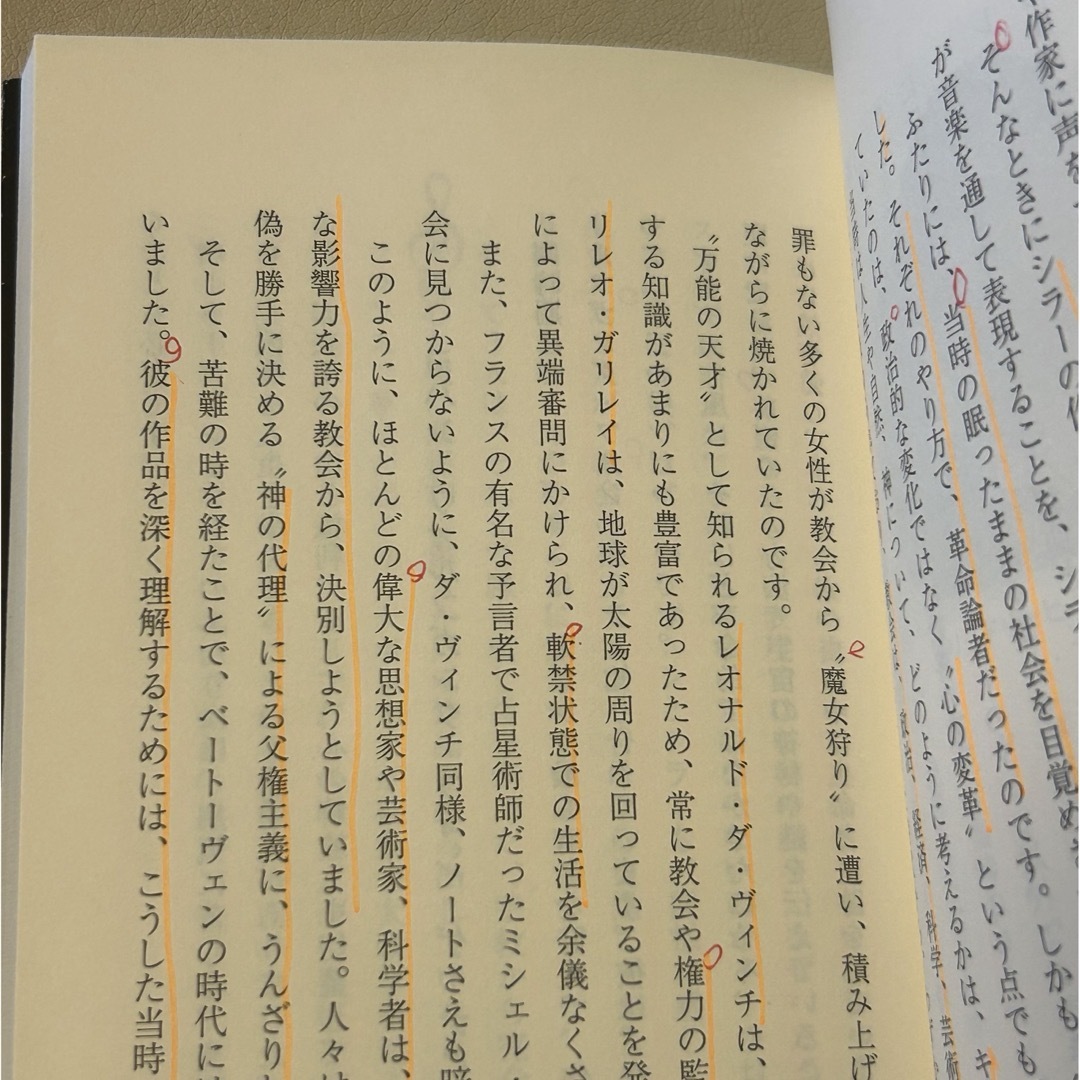 作家に声を
そんなときにシラーの作
が音楽を通して表現することを、シラ
ふたりには、当時の眠ったままの社会を目覚め
した。それぞれのやり方で、革命論者だったのです。しかも
ていたのは、政治的な変化ではなく〝心の変革〟という点でも
罪もない多くの女性が教会から〝魔女狩り〟に遭い、積み上げ
ながらに焼かれていたのです。
〝万能の天才〟として知られるレオナルド・ダ・ヴィンチは、
する知識があまりにも豊富であったため、常に教会や権力の監
リレオ・ガリレイは、地球が太陽の周りを回っていることを発
によって異端審問にかけられ、軟禁状態での生活を余儀なくさ
また、フランスの有名な予言者で占星術師だったミシェル・
会に見つからないように、ダ・ヴィンチ同様、ノートさえも暗
このように、ほとんどの偉大な思想家や芸術家、科学者は、
な影響力を誇る教会から、決別しようとしていました。人々は
偽を勝手に決める〝神の代理〟による父権主義に、うんざり
そして、苦難の時を経たことで、ベートーヴェンの時代に
いました。彼の作品を深く理解するためには、こうした当時